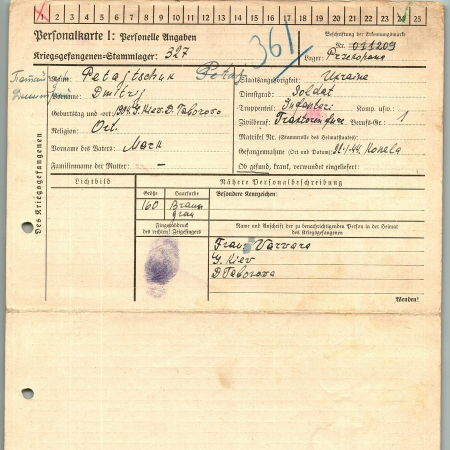 1 2 3 4 5 6 7 8 9 10 11 12 13 14 15 16 17 18 19 20 21 22 23 24 25
Personalkarte I: Personelle Angaben
Kriegsgefangenen-Stammlager: 327
361
Beschriftung der Erkennungsmarke
Nr. 011209
Lager: Przekopana
Des Kriegsgefangenen
Name: Petajtschuk
Petaj
Vorname: Dmitrj
Geburtstag und -ort: 1914 G. Kiev. D. Taborovo
Religion: Ort.
Vorname des Vaters: Mark
Familienname der Mutter: –
Staatsangehörigkeit: Ukraine
Dienstgrad: Soldat
Truppenteil: Infanteri Komp. usw.:
Zivilberuf: Berufs-Gr.: 1
Matrikel Nr. (Stammrolle des Heimatstaates):
Gefangennahme (Ort und Datum): 1.44. Konela
Ob gesund, krank, verwundet eingeliefert:
Lichtbild
Nähere Personalbeschreibung
Größe Haarfarbe Besondere Kennzeichen:
160 Braun
Fingerabdruck
des rechten Zeigefingers
Name und Anschrift der zu benachrichtigenden Person in der Heimat
des Kriegsgefangenen
Frau Varvara
G. Kiev
D Taborova
Wenden!